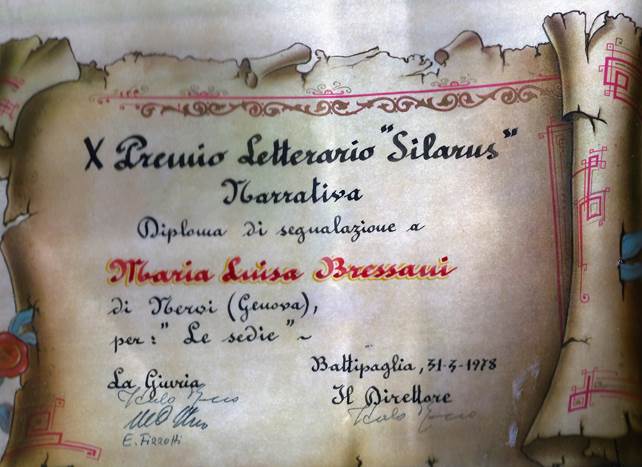 X Premio Letterario "Silarus"
Narrativa
Diploma di segnalazione a
Maria Luisa Bressani
di Nervi (Genova),
per: "Le sedie" ~
Battipaglia, 31-3-1978
La Giuria
Il Direttore
E. Fizzotti